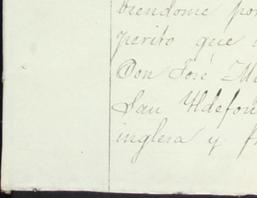 biendome por
perito que
Don José M
San Yldefon
inglesa y f